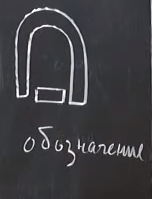 обозначение